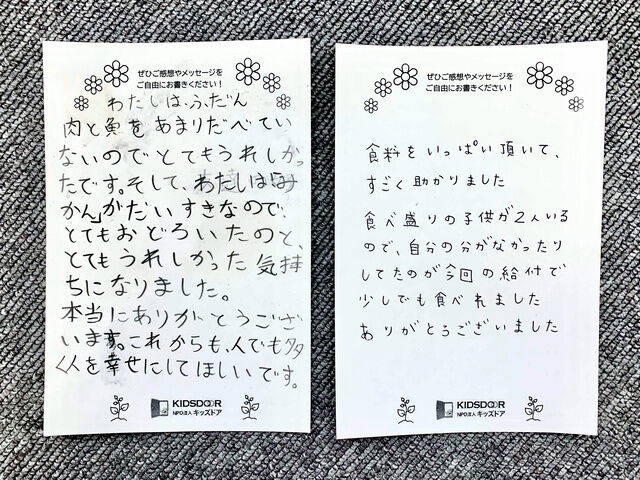 ぜひご感想やメッセージを
ご自由にお書きください！
わたしは、ふだん
肉と魚をあまりたべてい
ないのでとてもうれしかっ
たです。そして、わたしは「み
かん」がだいすきなので、
とてもおどろいたのと、
とてもうれしかった気持
ちになりました。
本当にありがとうござい
います。これからも、人でも多
く人を幸せにしてほしいです。
KIDSDOOR
NPO法人 キッズドア
ぜひご感想やメッセージを
ご自由にお書きください！
食料をいっぱい頂いて、
すごく助かりました
食べ盛りの子供が2人いる
ので、自分の分がなかったり
してたのが今回の給付で
少しでも食べれました
ありがとうございました
KIDSDOOR
NPO法人 キッズドア